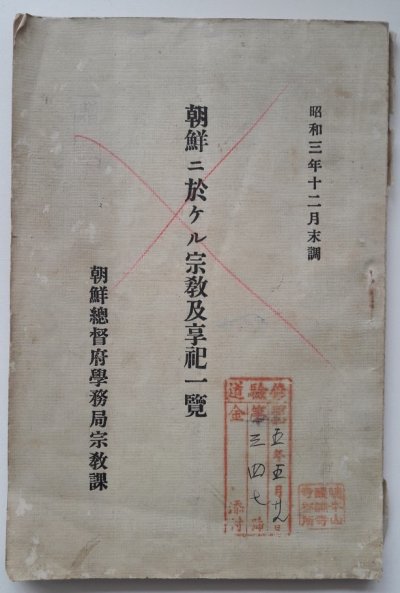 昭和三年十二月末調
朝鮮ニ於ケル宗教及享祀一覽
朝鮮總督府學務局宗教課
五年五月廿九日
三四七
添付